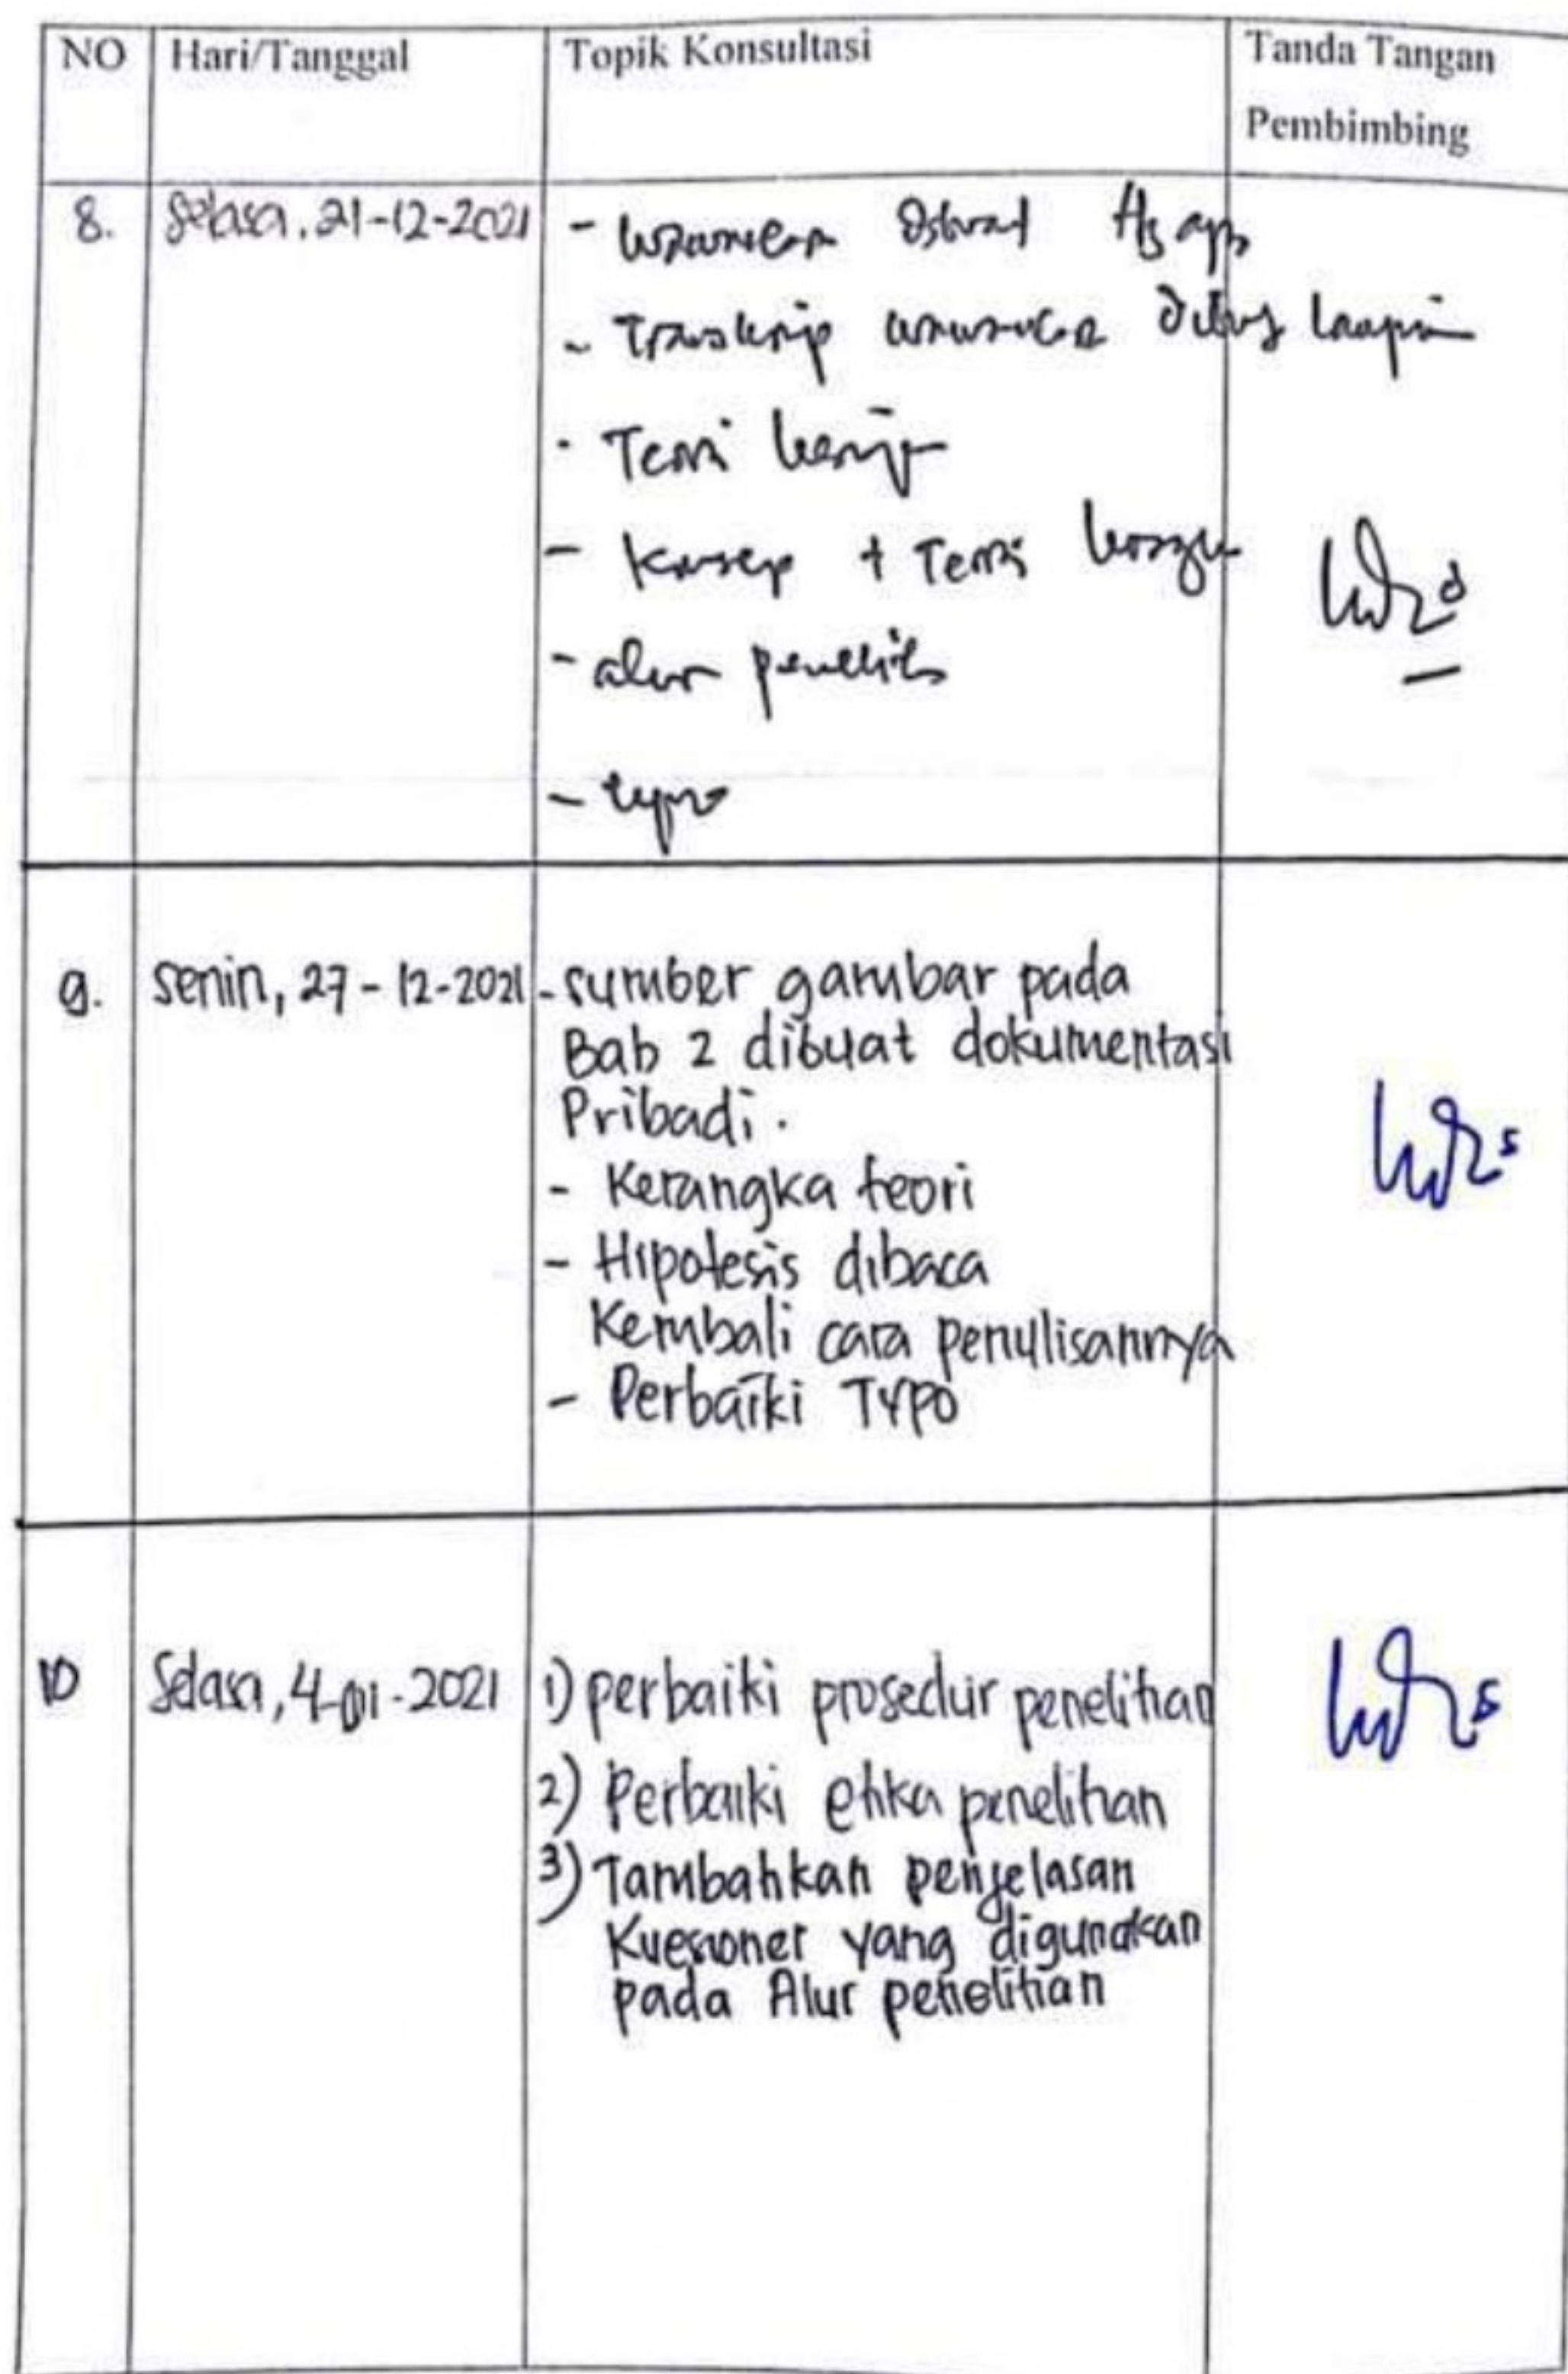 NO Hari/Tanggal Topik Konsultasi Tanda Tangan
Pembimbing
8. Selasa, 21-12-2021
- Transkrip
- Teori
- Konsep + Teori
- alur
- typo
9. Senin, 27-12-2021 - sumber gambar pada
Bab 2 dibuat dokumentasi
Pribadi.
- Kerangka teori
- Hipotesis dibaca
Kembali cara penulisannya
- Perbaiki Typo
10 Selasa, 4-01-2021 1) perbaiki prosedur penelitian
2) Perbaiki etika penelitian
3) Tambahkan penjelasan
Kuesioner yang digunakan
pada Alur penelitian